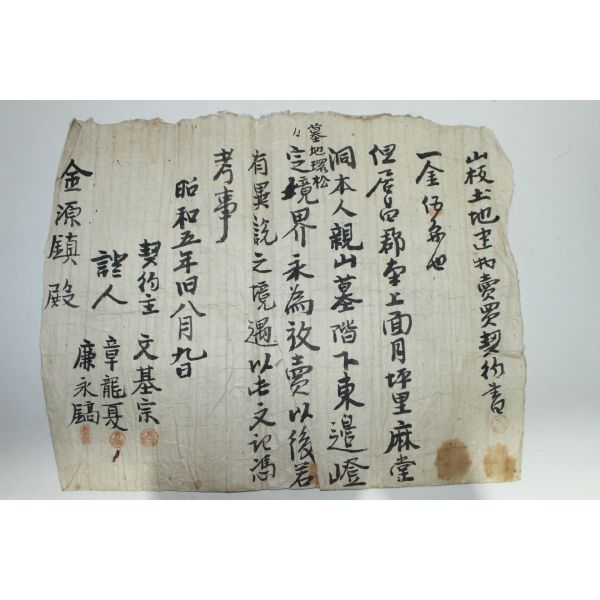 山坂土地建物賣買契約書
一金伍円也
但居昌郡 上面月坪里麻堂
洞本人親山墓階下東邉嶝
墓地環松
定境界永為放賣以後若
有異說之境遇以此文記憑
考事
昭和五年旧八月九日
契約主 文基宗
證人 章龍夏
廉永鎬
金源鎮 殿